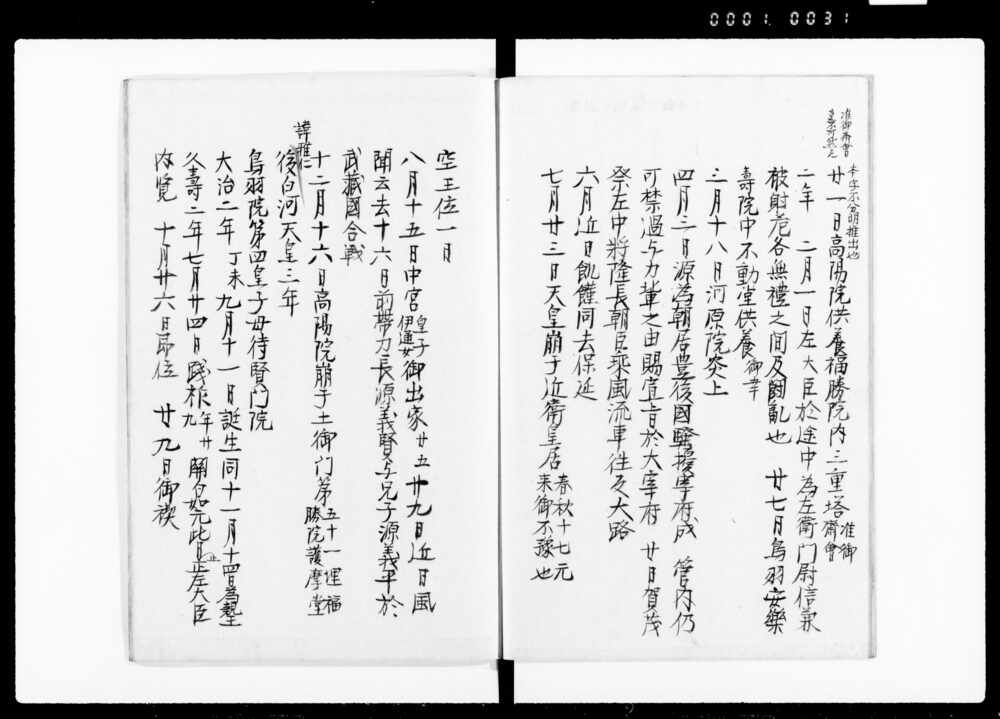 0001 0031
准御斎會
本字不分明推出也
廿一日高陽院供養福勝院内三重塔准御斎會
二年 二月一日左大臣於途中為左衛门尉信兼
被射危各無禮之间及闘亂也 廿七日鳥羽安樂
壽院中不動堂供養御幸
三月十八日河原院炎上
四月三日源為朝居豊後國騒擾宰府成 管内仍
可禁遏与力輩之由賜宣旨於大宰府 廿日賀茂
祭左中将隆長朝臣乗風流車往反大路
六月近日飢饉同去保延
七月廿三日天皇崩于近衛皇居春秋十七元来御不豫也
空王位一日
八月十五日中宮皇子伊通女御出家廿五 廿九日近日風
聞云去十六日前帯刀長源義賢与兄子源義平於
武蔵國合戦
十二月十六日高陽院崩于土御门第五十一埋福勝院護摩堂
諱雅仁
後白河天皇三年
鳥羽院第四皇子母待賢门院
大治二年丁未九月十一日誕生同十一月十四日為親王
久壽二年七月廿四日践祚年廿九 関白如元此日止左大臣
内覧 十月廿六日即位 廿九日御禊